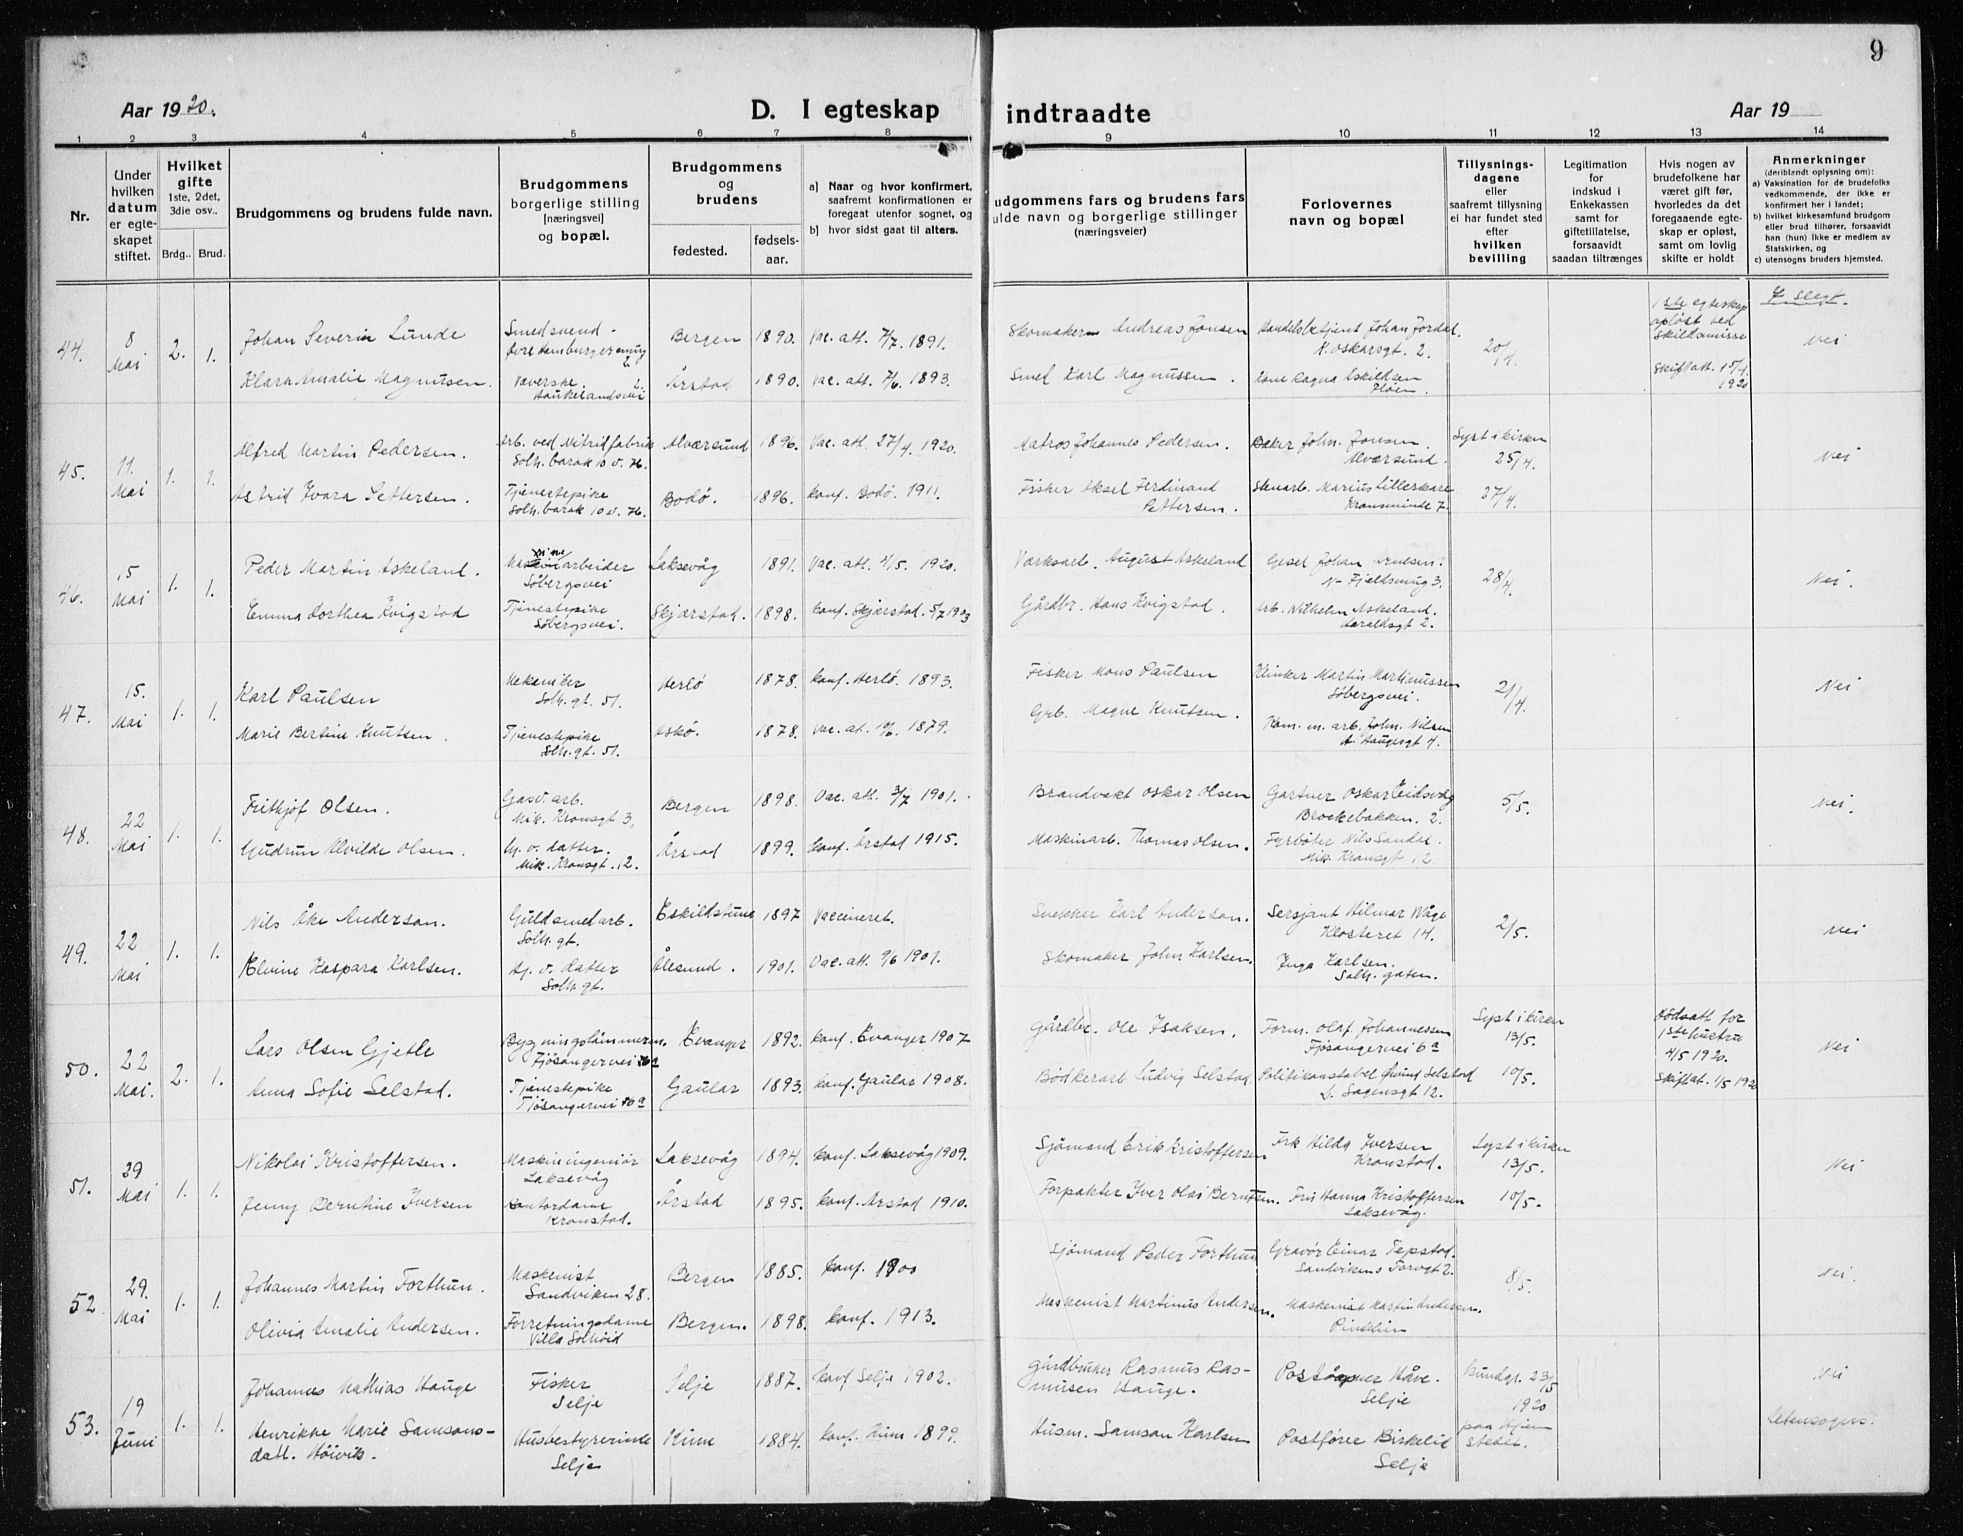 9
Aar 1920.
D. I egteskap indtraadte
Aar 19
1 2 3 4 5 6 7 8 9 10 11 12 13 14
Nr.
Under hvilken datum er egteskapet stiftet.
Hvilket gifte 1ste, 2det, 3die osv..
Brdg.. Brud.
Brudgommens og brudens fulde navn.
Brudgommens borgerlige stilling (næringsvei) og bopæl.
Brudgommens og brudens
fødested.
fødselsaar.
a) Naar og hvor konfirmert, saafremt konfirmationen er foregaat utenfor sognet, og
b) hvor sidst gaat til alters.
udgommens fars og brudens fars
ulde navn og borgerlige stillinger
(næringsveier)
Forlovernes navn og bopæl
Tillysningsdagene eller saafremt tillysning ei har fundet sted efter hvilken bevilling
Legitimation for indskud i Enkekassen samt for giftetillatelse, forsaavidt saadan tiltrænges
Hvis nogen av brudefolkene har været gift før, hvorledes da det foregaaende egteskap er opløst, samt om lovlig skifte er holdt
Anmerkninger
(deriblandt oplysning om):
a) Vaksination for de brudefolks vedkommende, der ikke er konfirmert her i landet;
b) hvilket kirkesamfund brudgom eller brud tilhører, forsaavidt han (hun) ikke er medlem av Statskirken, og
c) utensogns bruders hjemsted.
44. 8 Mai 2. 1.
Johan Severin Lunde
Smedsvend
Bergen 1890. Vac. att. 7/7. 1891.
Skomaker Andreas Jonsen
Handelsbetjent Johan Jordal.
K. Oskarsgt. 2.
20/4.
1ste egteskap opløst ved Skilsmisse
Skiftatt. 15/4. 1920
I slegt.
Nei
Klara Amalie Magnusen.
Væverske. Haukelandsvei 2.
Årstad 1890. Vac. att. 7/6. 1893.
Smed Karl Magnussen.
Ragna Eskildsen
Fløen.
45. 11. Mai 1. 1.
Alfred Martin Pedersen.
Arb. ved Nitridfabrik
Solh. barak 10 v. 76.
Alværsund 1896. Vac. att. 27/4 1920.
Matros Johannes Pedersen.
Baker John. Jonsen.
Alværsund.
Lyst i kirken
25/4.
Nei
Astrid Ivara Pettersen.
Tjenestepike
Solh. barak 10 v. 76.
Bodø. 1896. konf. Bodø. 1911.
Fisker Aksel Ferdinand Pettersen.
Stenarb. Marius Lilleskare
Kronsminde 7.
27/4.
46. 15 Mai 1. 1.
Peder Martin Askeland.
Maskinarbeider
Søbergsvei
Laksevåg 1891. Vac. att. 1920.
Værksarb. August Askeland
Johan Arnesen.
N. Fjeldsmug 3.
28/4.
Nei.
Emma Dorthea Kvigstad
Tjenestepike
Søbergsvei.
Skjærstad. 1898. konf. Skjærstad. 5/7 1903
Gårdbr. Hans Kvigstad.
Arb. Wilhelm Askeland.
Haraldsgt 2.
47. 15. Mai 1. 1.
Karl Paulsen
Mekaniker
Solh. gt. 51.
Herlø 1878. konf. Herlø. 1893.
Fisker Mons Paulsen
Klinker Martin Martinussen
Søbergsvei.
2/4.
Nei
Marie Bertine Knutsen.
Tjenestepike
Solh. gt. 51.
Askø. 1878. Vac. at. 1879.
Grb. Magne Knutsen.
Kom. m. arb. John. Nilsen
A. Haugesgt 4.
48. 22 Mai 1. 1.
Frithjof Olsen.
Gasv. arb.
Mik. Kronsgt 3.
Bergen 1898. Vac. att. 3/7 1901.
Brandvakt Oskar Olsen
Gartner Oskar Eidsvåg
Brockebakken. 2.
5/5.
Nei.
Gudrun Alvilde Olsen.
Hj. v. datter.
Mik. Kronsgt. 12.
Årstad 1899. konf. Årstad 1915.
Maskinarb. Thomas Olsen.
Fyrbøter Nils Sandal.
Mik. Kronsgt 12.
49. 22 Mai 1. 1.
Nils Åke Anderson.
Guldsmedarb.
Solh. gt.
Eskildstuna 1897 Vaccineret.
Snekker Karl Anderson.
Sersjant Hilmar Våge
Klosteret 14.
2/5.
Nei
Elvine Kaspara Karlsen.
Hj. v. datter
Solh. gt.
Ålesund. 1901. Vac. att. 9/6 1901.
Skomaker John Karlsen.
Inga Karlsen.
Solh. gaten.
50. 22 Mai. 2. 1.
Lars Olsen Gjelle
Bygningstømmerm.
Fjøsangervei
Evanger 1892. konf. Evanger 1907
Gårdbr. Ole Isaksen.
Form. Olaf Johannessen
Fjøsangervei 6a
Lyst i kirken
13/5.
Dødsatt for 1ste hustru
4/5 1920.
Skiftat. 1/5 1920
Nei
Anna Sofie Selstad.
Tjenestepike
Fjøsangervei
Gaular 1893. konf. Gaular 1908.
Bødkerarb Ludvig Selstad
Politikonstabel Selstad
D. Sagensgt 12.
10/5.
51. 29 Mai 1. 1.
Nikolai Kristoffersen.
Maskiningeniør
Laksevåg
Laksevåg 1894. konf. Laksevåg 1909.
Sjømand Erik Kristoffersen
Frk Hilda Iversen
Kronstad.
Lyst i kirken
13/5.
Nei
Jenny Berntine Iversen
Kontordame
Kronstad.
Årstad 1895. konf. Årstad 1910.
Forpakter Iver Olai Berntsen.
Fru Hanna Kristoffersen
Laksevåg.
10/5.
52 29. Mai 1. 1.
Johannes Martin Forthun.
Maskenist
Sandviken 28.
Bergen 1885. konf. 1900
Sjømand Peder Forthun
Gravør Einar Tepstad.
Sandvikens Torvgt 2.
8/5.
Nei.
Olivia Amalie Andersen.
Forretningsdame
Villa Solhøid
Bergen. 1898. konf. 1913.
Maskenist Martinus Andersen.
Maskenist Martin Andersen.
53. 19 Juni 1. 1.
Johannes Mathias Hauge
Fisker
Selje
Selje 1887. konf Selje 1902.
Gårdbruker Rasmus Rasmusen Hauge.
Poståpner Håve.
Selje
Kundgj. 23/5 1920 paa hjemstedet.
Nei
Utensogns.
Henrikke Marie Samsonsdatt. Høivik.
Husbestyrerinde
Selje
Kinn 1884. konf. Kinn 1899.
Husm. Samson Karlsen
Postfører Birkelid
Selje